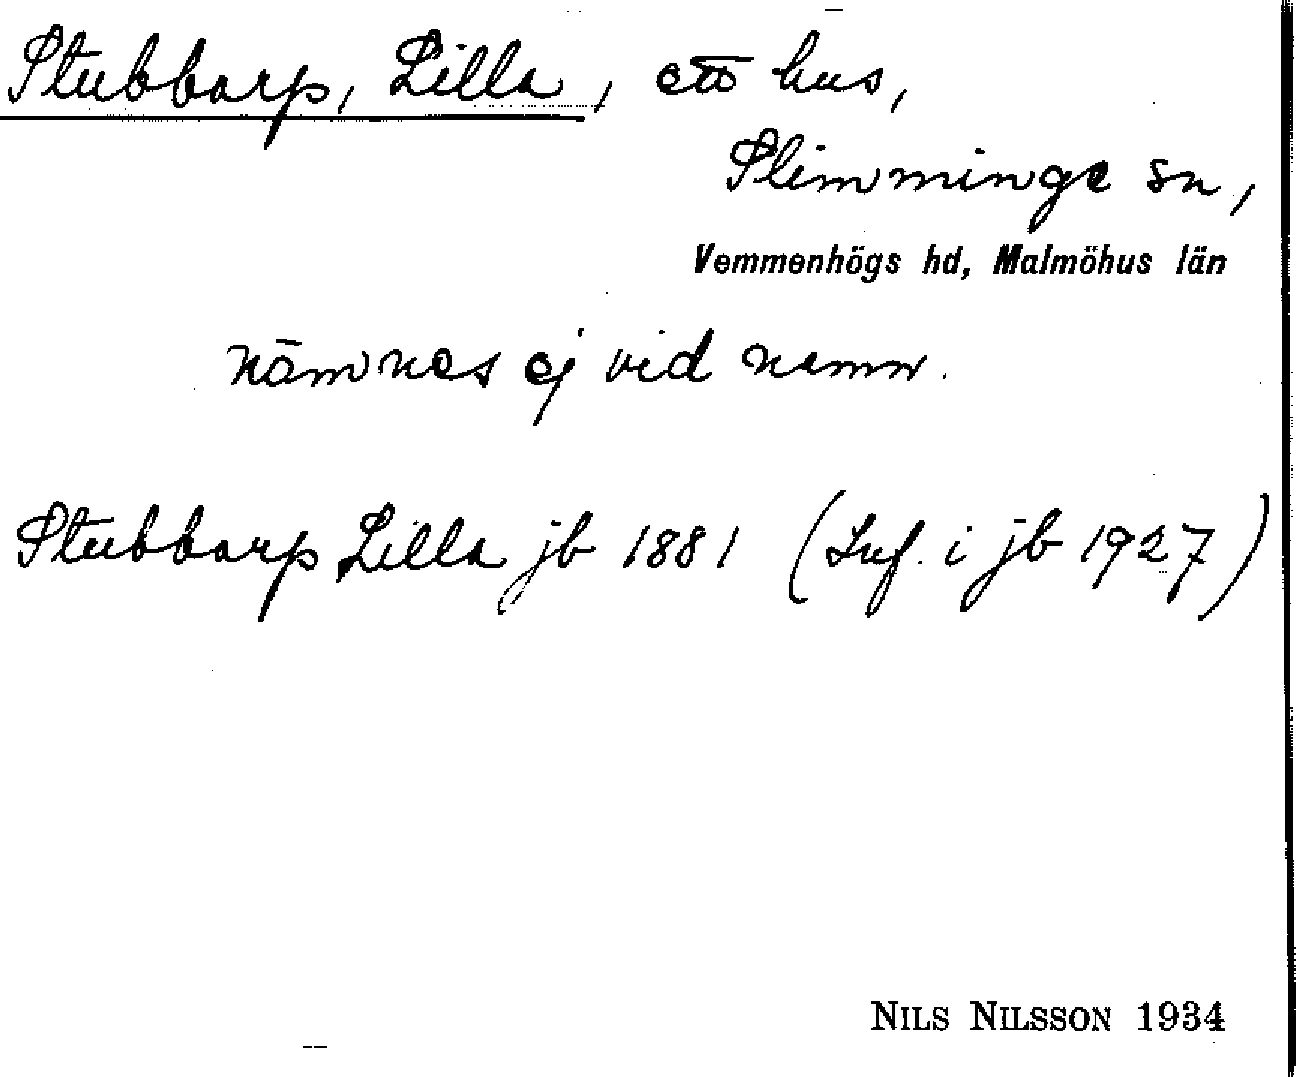 Stubbarp, Lilla, ett hus,
Slimminge sn,
Vemmenhögs hd, Malmöhus län
nämnes ej vid namn.
Stubbarp Lilla jb 1881 (Luf. i jb 1927)
NILS NILSSON 1934